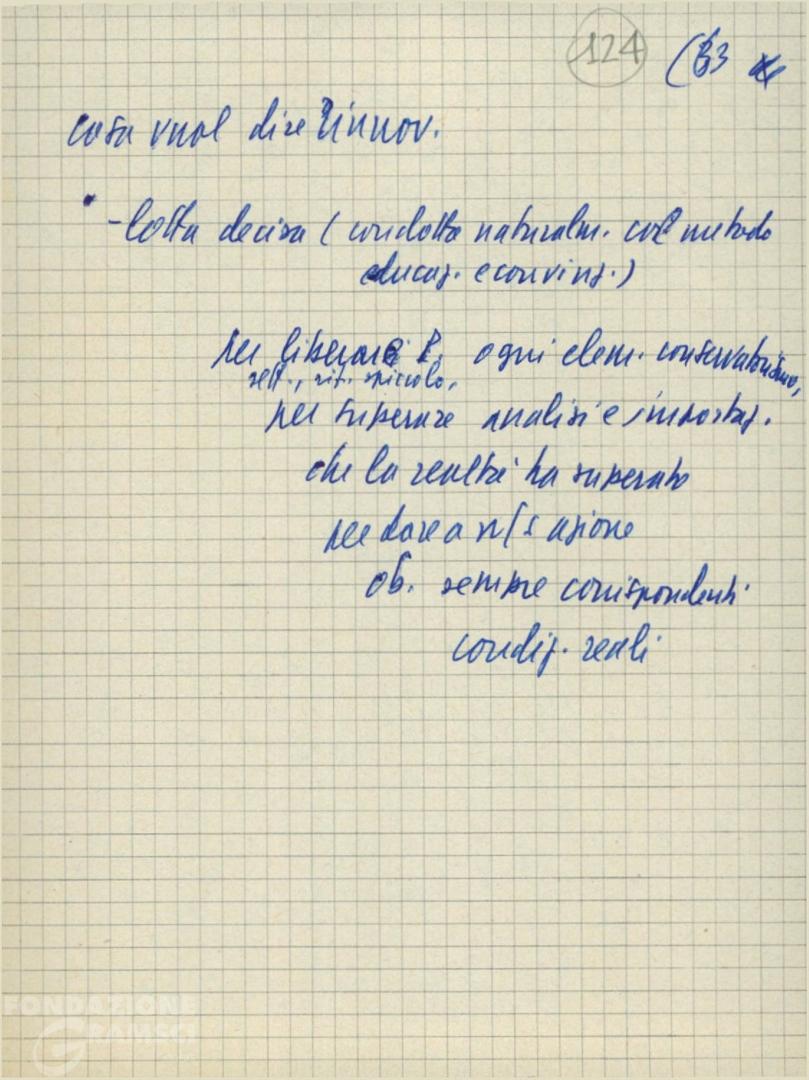 124 (63
cosa vuol dire rinnov.
- lotta decisa (condotta naturalm. col metodo
educaz. e convinz.)
per liberare P. ogni elem. conservatorismo,
sett., rit. spiccolo,
per superare analisi e impostaz.
che la realtà ha superato
per dare a n/s azione
ob. sempre corrispondenti
condiz. reali
FONDAZIONE
GRAMSCI